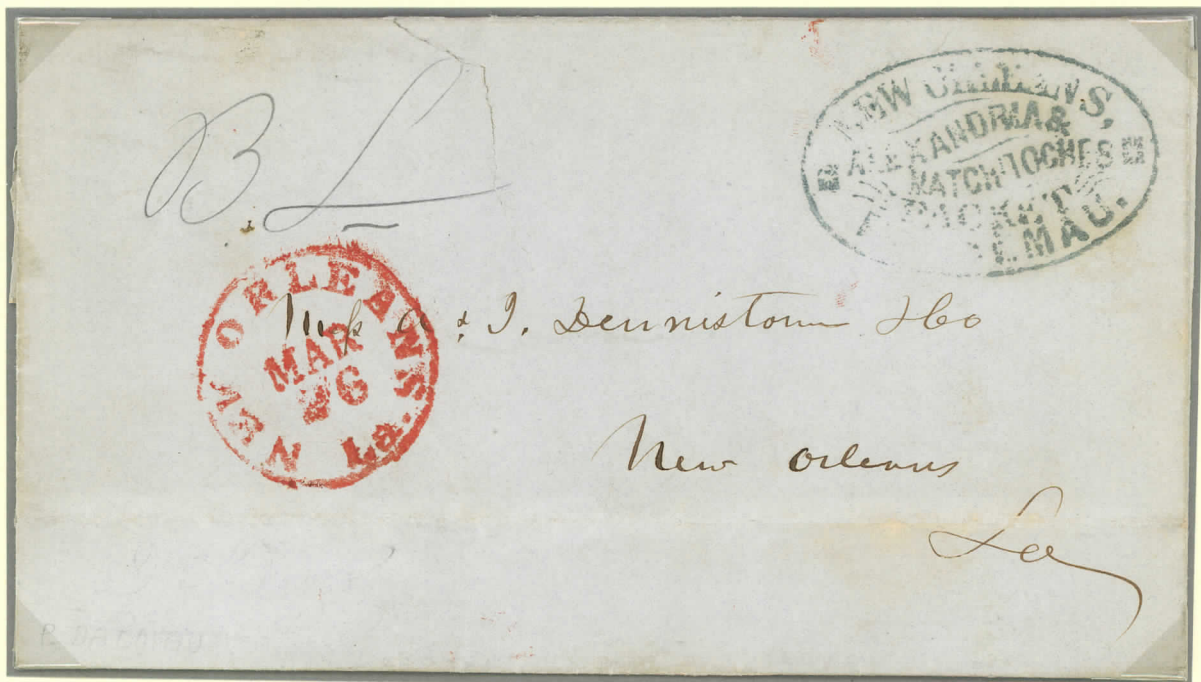 B L
NEW ORLEANS,
ALEXANDRIA &
NATCHITOCHES
PACKET
NEW ORLEANS La.
MAR
26
A & J. Dennistoun & Co
New Orleans
La